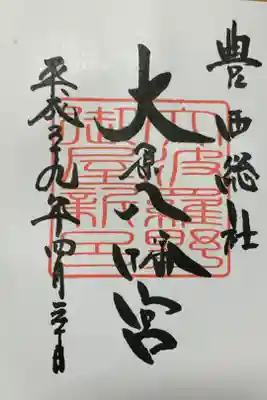 豊西総社
大原八幡宮
平成二九年四月三十日